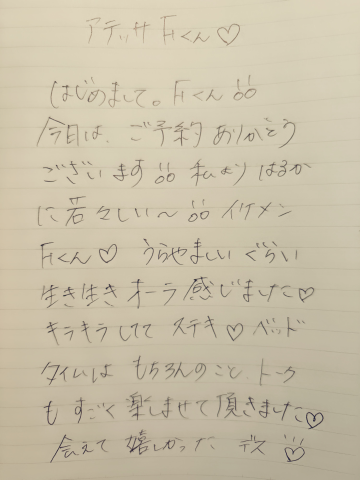 アテッサ Fくん♡
はじめまして。Fくん
今日は、ご予約ありがとう
ございます 私よりはるか
に若々しい〜 イケメン
Fくん♡ うらやましいぐらい
生き生きオーラ感じました♡
キラキラしてて ステキ♡ ベッド
タイムはもちろんのこと、トーク
もすごく楽しませて頂きました♡
会えて嬉しかったデス ♡